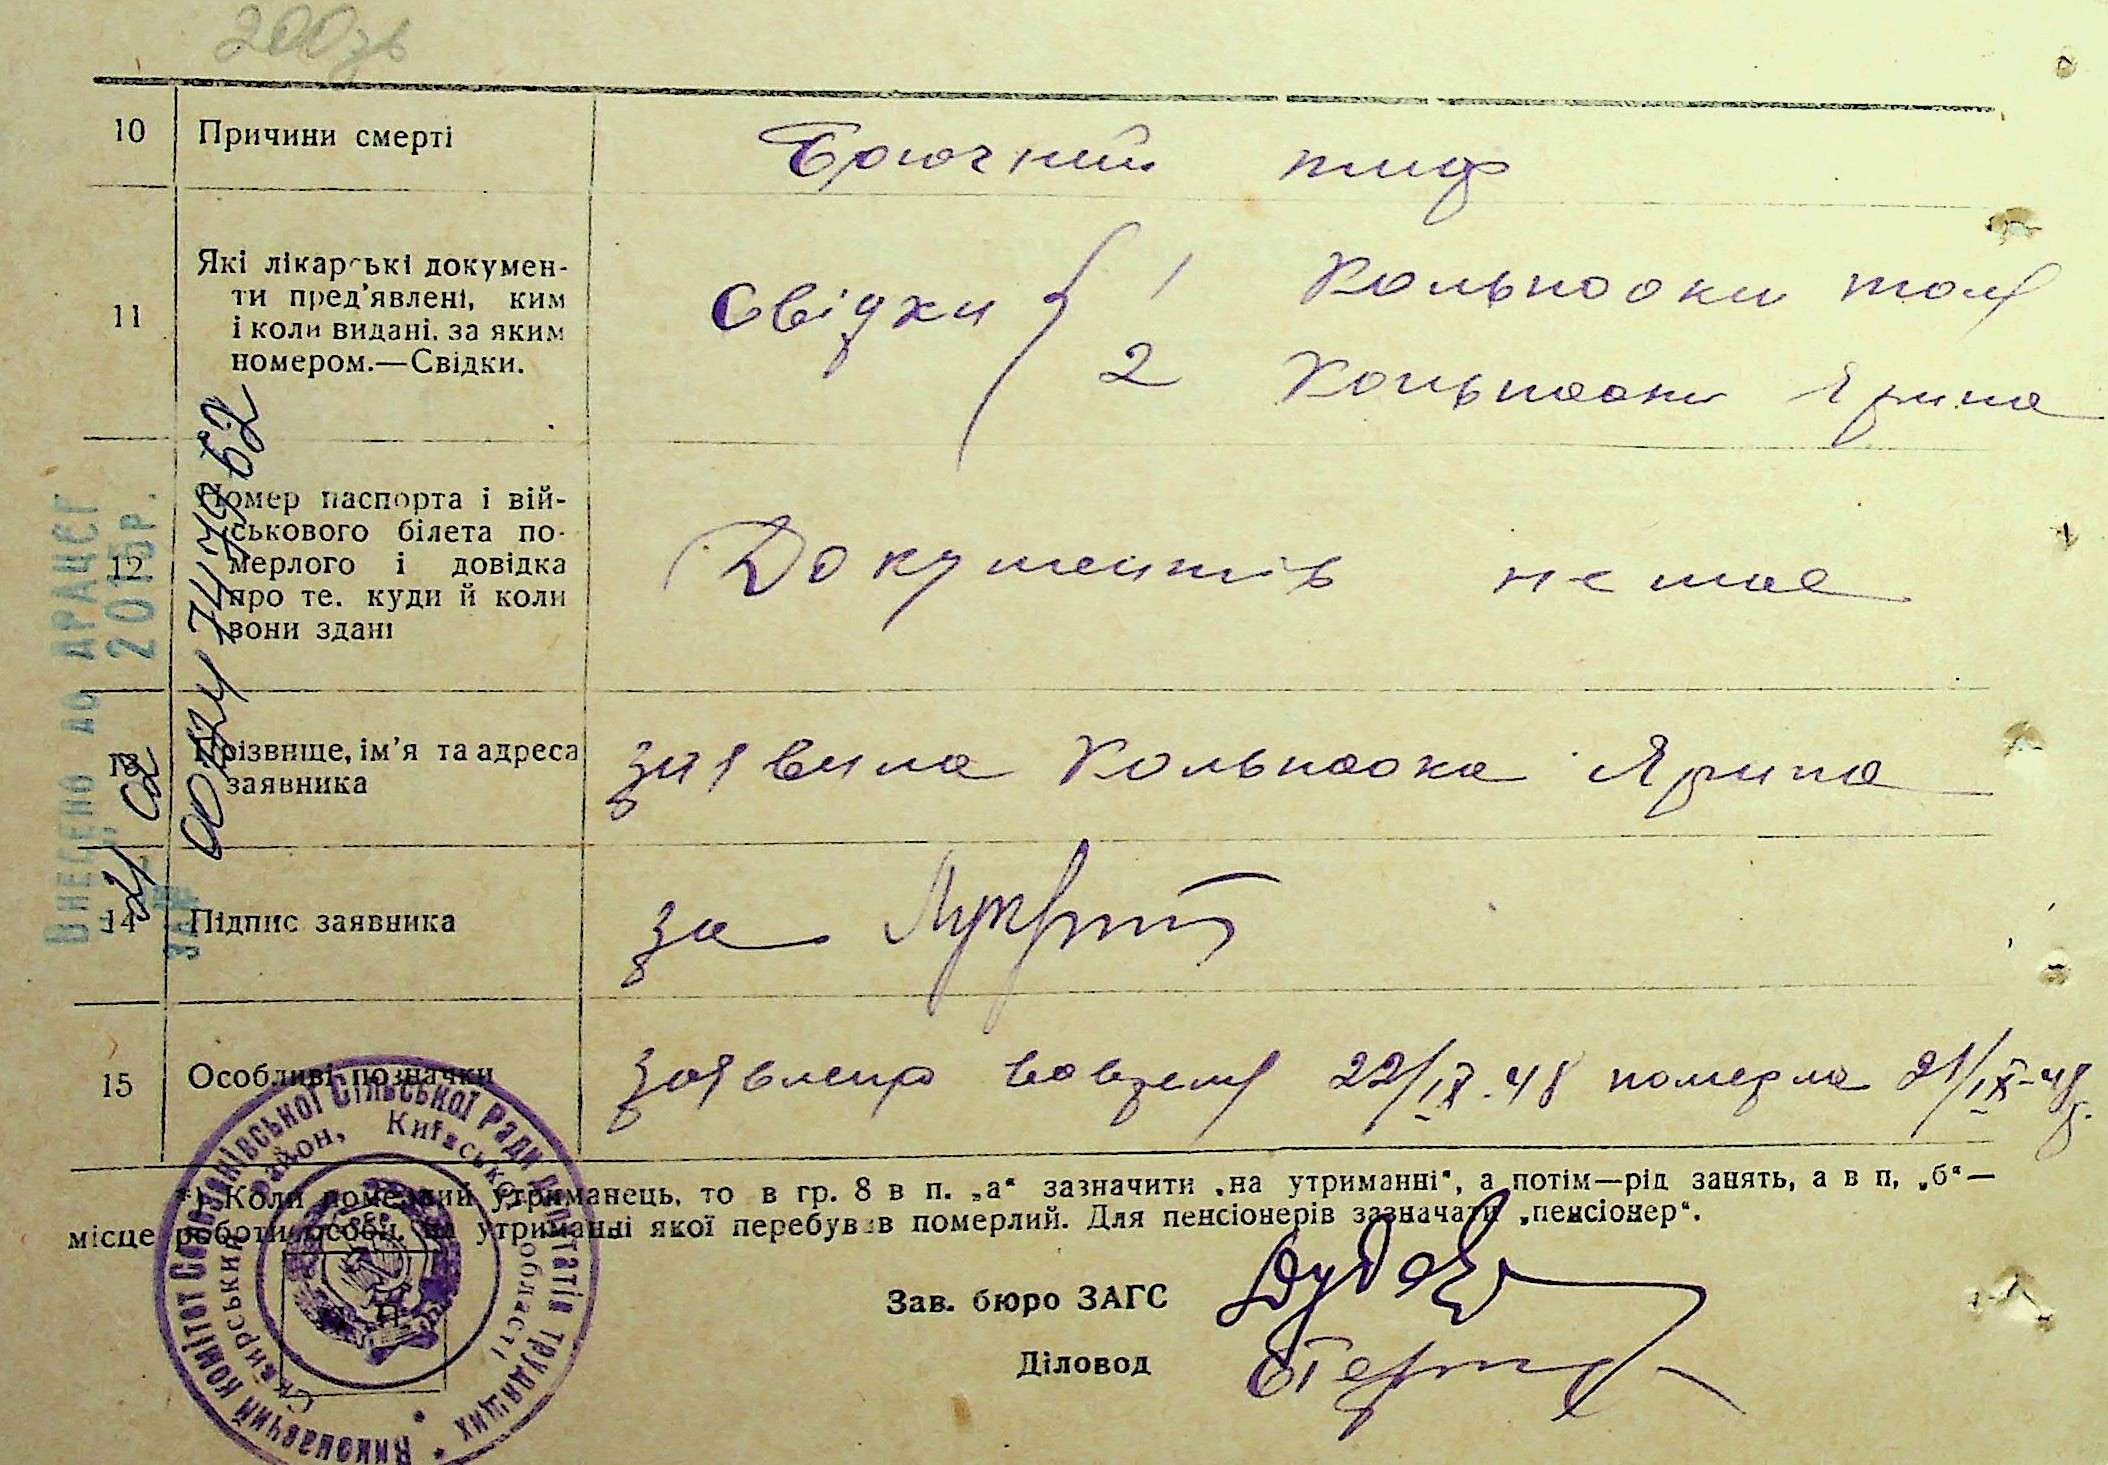 200зв
10 Причини смерті Брючний тиф
11 Які лікарські докумен-
ти пред'явлені, ким
і коли видані, за яким
номером.—Свідки.
Свідки { 1
2 Ярина
12 Номер паспорта і вій-
ськового білета по-
мерлого і довідка
про те, куди й коли
вони здані
Документів немае
13 Прізвище, ім'я та адреса
заявника
заявила Кольпаока Ярина
14 Підпис заявника за
15 Особливі позначки заявлено вовремя 22/IX-48 померла 21/IX-48р.
*) Коли померлий утриманець, то в гр. 8 в п. „а“ зазначити „на утриманні“, а потім—рід занять, а в п. „б“—
місце роботи особи, на утриманні якої перебував померлий. Для пенсіонерів зазначати „пенсіонер“.
Зав. бюро ЗАГС
Діловод
Внесено до ДРАЦСГ
21 02 2015р.
за № 00124747962
Виконавчий комітет Сільської ради депутатів трудящих
Сквирський район, Київської області